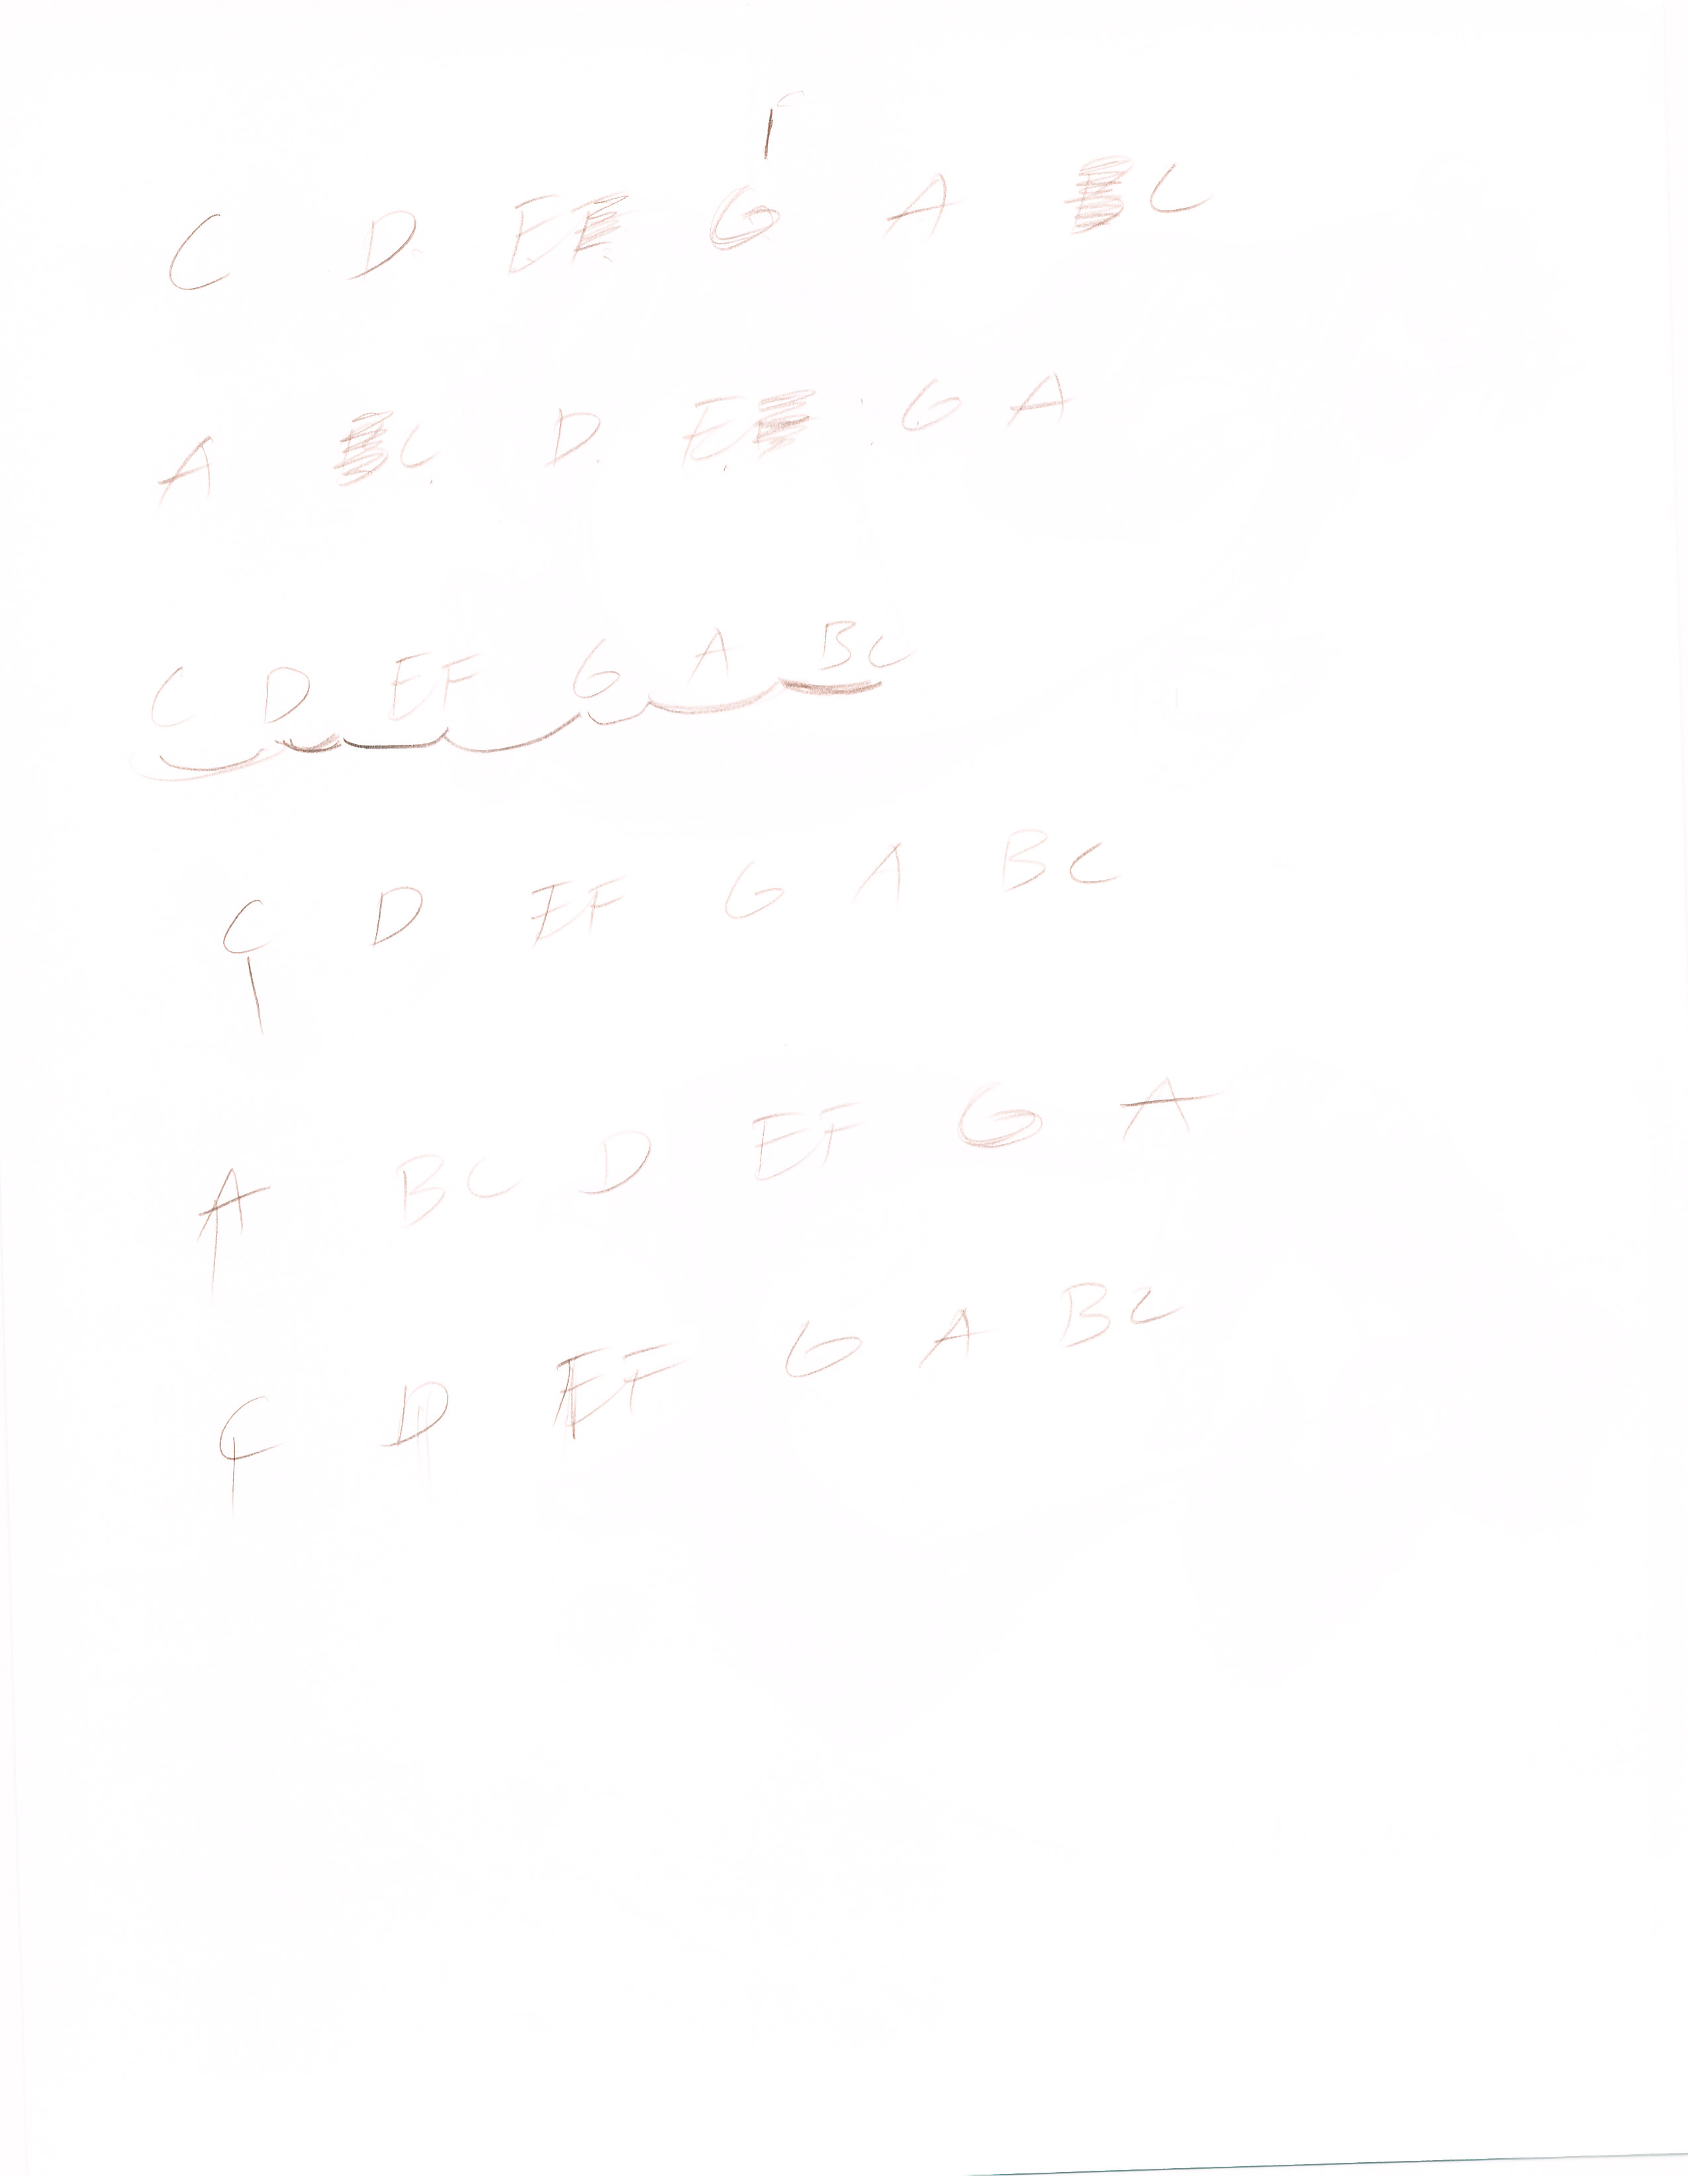 C D EF G A BC
A BC D EF G A
C D EF G A BC
C D EF G A BC
A BC D EF G A
C D EF G A BC